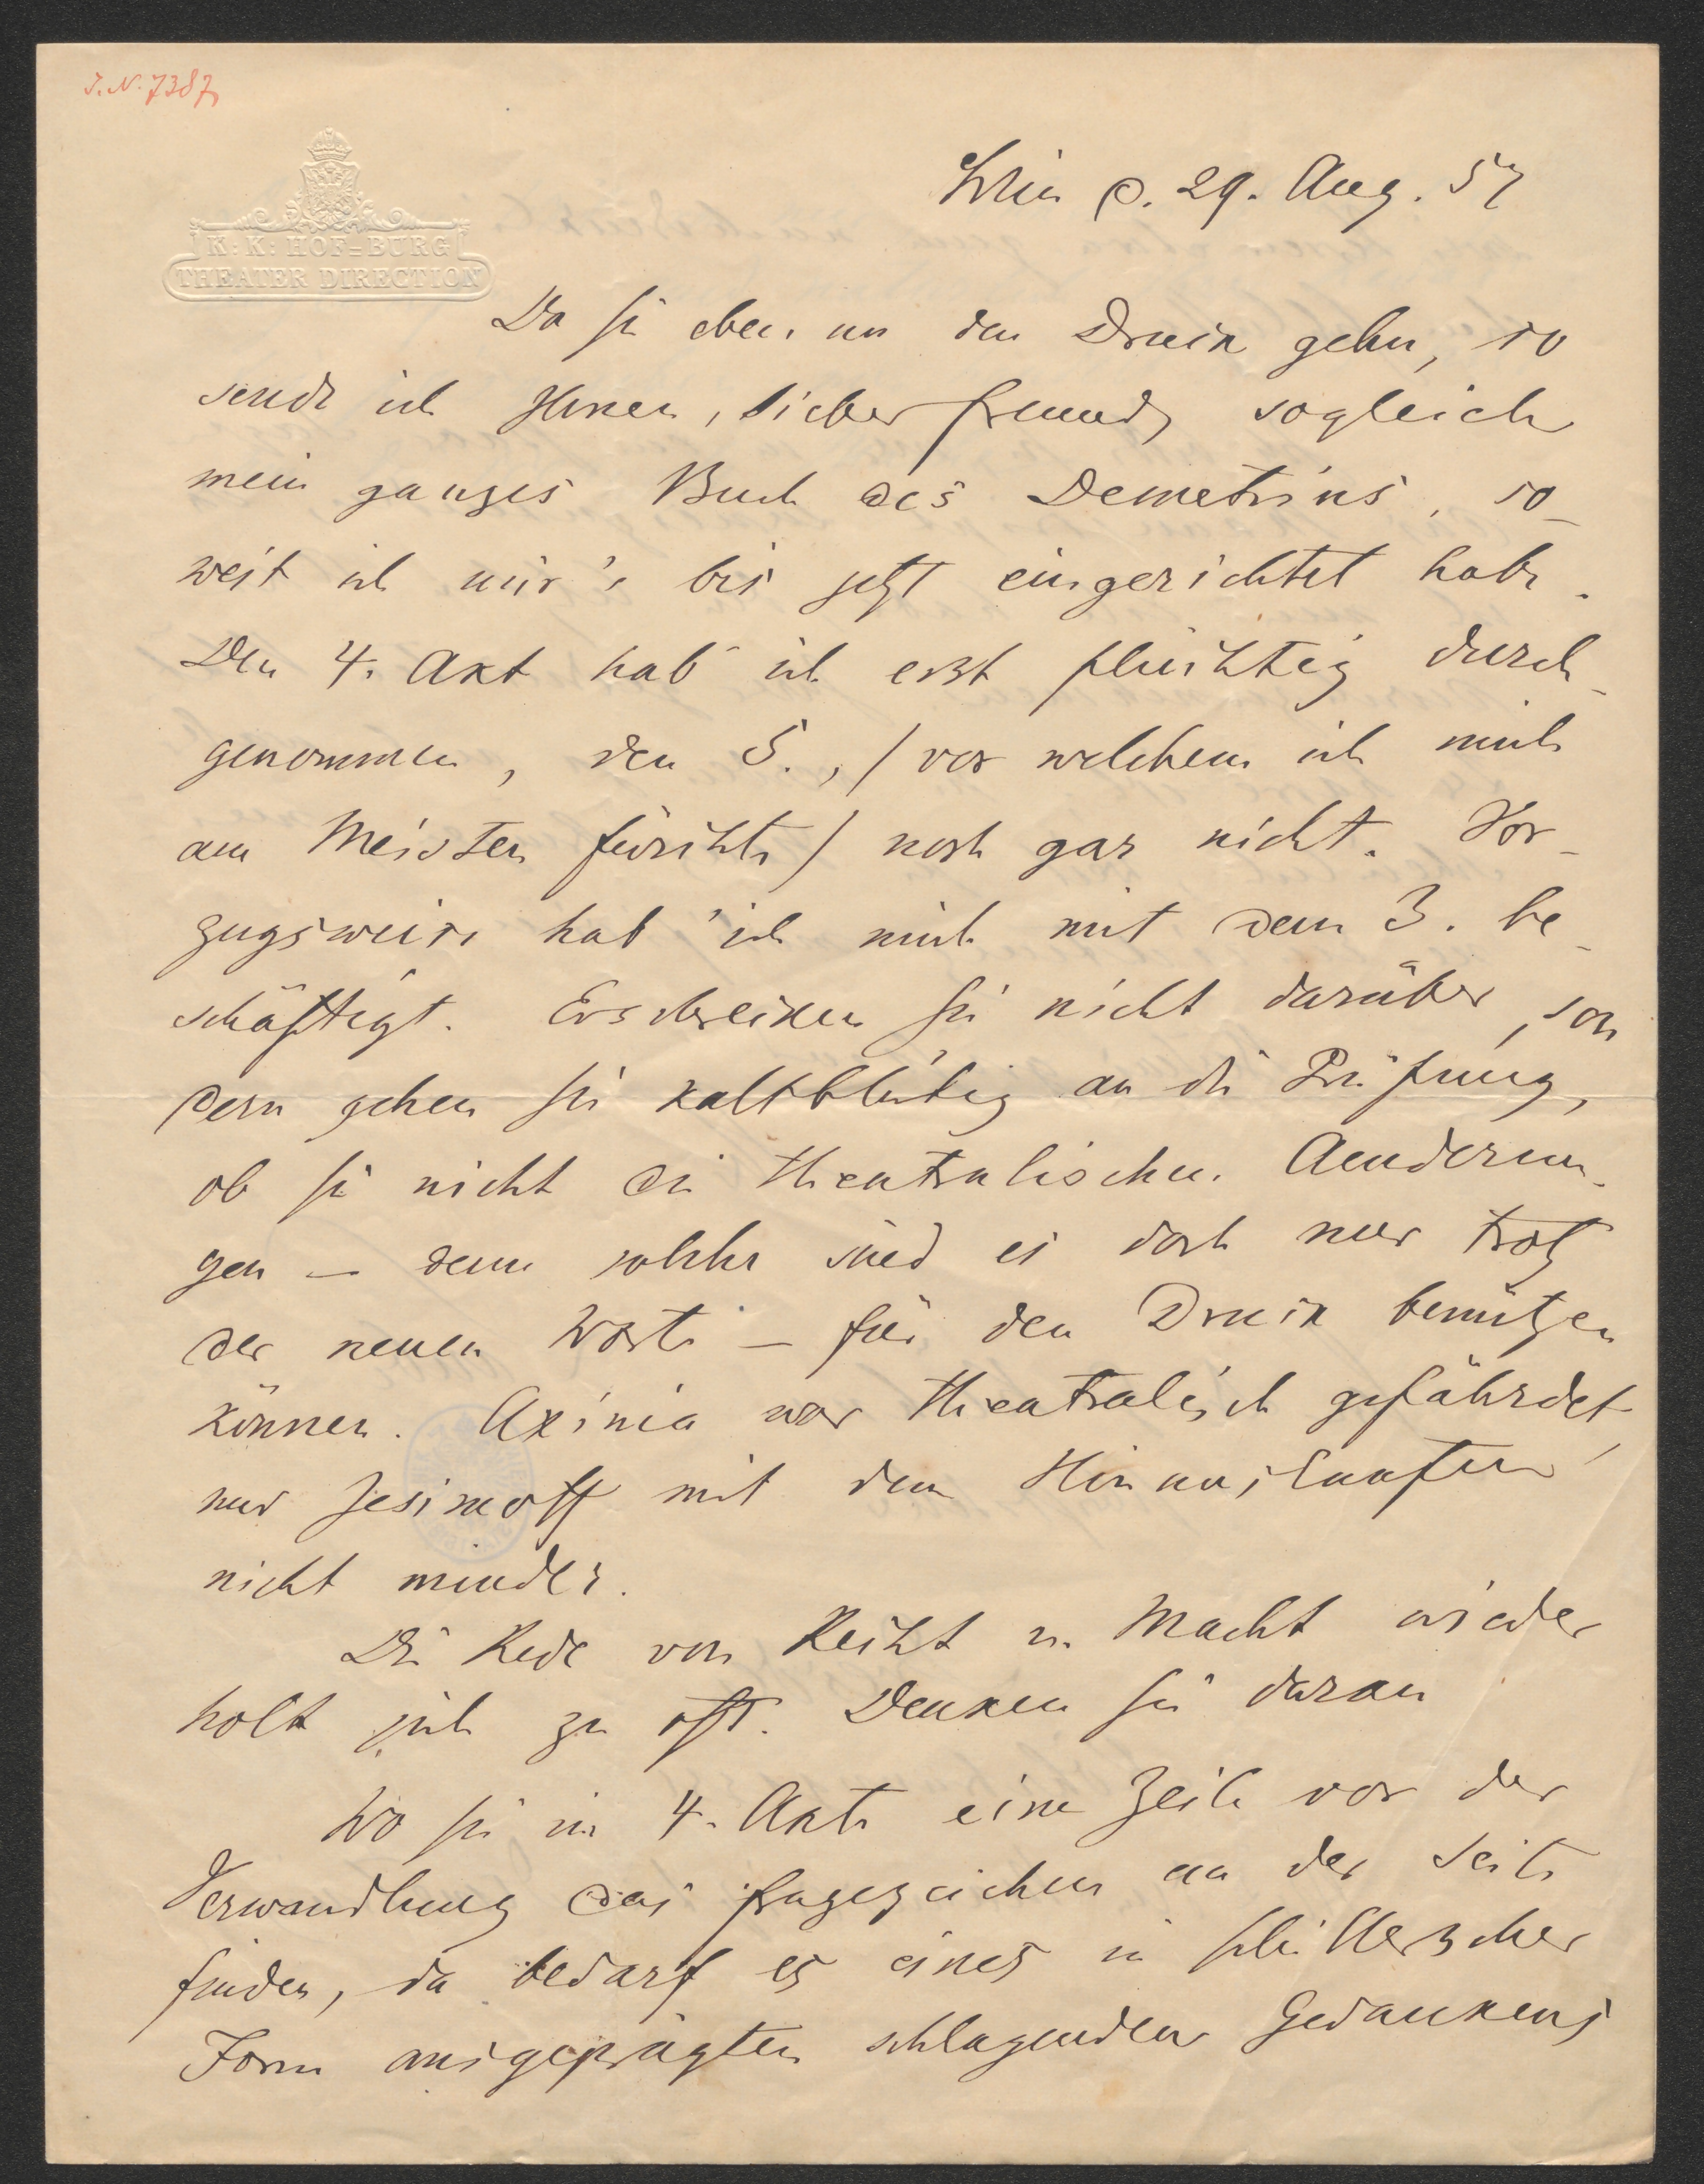 J.N. 7387
K: K: HOF=BURG
THEATER DIRECTION
Wien d. 29. Aug. 57
Da Sie eben an den Druck gehn, so
sende ich Ihnen, lieber Freund, sogleich
mein ganzes Buch des Demetrius, so-
weit ich mir's bis jetzt eingerichtet habe.
Den 4. Akt hab' ich erst flüchtig durch-
genommen, den 5., / vor welchem ich mich
am Meisten fürchte / noch gar nicht. Vor-
zugsweise hab' ich mich mit dem 3. be-
schäftigt. Erschrecken Sie nicht darüber, son
dern gehen Sie kaltblütig an die Prüfung,
ob Sie nicht die theatralischen Aenderun-
gen – denn solche sind es doch nur trotz
der neuen Worte – für den Druck benützen
können. Axinia war theatralisch gefährdet,
und Jesimoff mit dem
nicht minder.
Die Rede von Recht u. Macht wieder
holt sich zu oft. Denken Sie daran
Wo Sie im 4. Akte eine Zeile vor der
Verwandlung das Fragezeichen an der Seite
finden, da bedarf es eines in Schillerscher
Form ausgeprägten schlagenden Gedankens